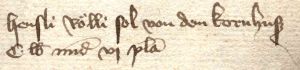 hensli völli sol von den kornhuß
C lb mid vj plā